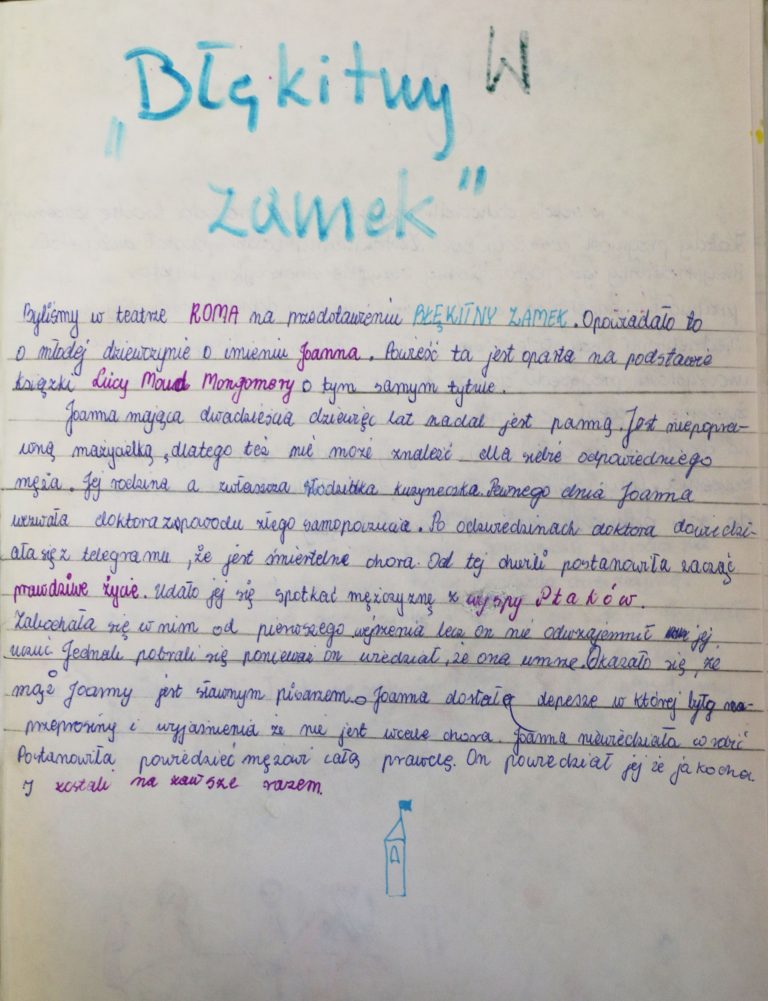 W
„Błękitny
zamek"
Byliśmy w teatrze ROMA na przedstawieniu BŁĘKITNY ZAMEK. Opowiadało to
o młodej dziewczynie o imieniu Joanna. Powieść ta jest oparta na podstawie
książki Lucy Moud Mongomery o tym samym tytule.
Joanna mająca dwadzieścia dziewięć lat nadal jest panną. Jest niepopra-
wną marzycielką, dlatego też nie może znaleść dla siebie odpowiedniego
męża. Jej rodzina a zwłaszcza słodziutka kuzyneczka. Pewnego dnia Joanna
wezwała doktora zspowodu złego samopoczucia. Po odzwiedzinach doktora dowiedzi-
ała się z telegramu, że jest śmiertelne chora. Od tej chwili postanowiła zacząć
prawdziwe życie. Udało jej się spotkać mężczyznę z wyspy Ptaków.
Zakochała się w nim od pierwszego wejrzenia lecz on nie odwzajemnił jej
uczuć Jednak pobrali się ponieważ on wiedział, że ona umrze. Okazało się, że
mąż Joanny jest sławnym pisarzem. Joanna dostała depesze w której były
przeprosiny i wyjaśnienia że nie jest wcale chora. Joanna niewiedziała co robić
Postanowiła powiedzieć mężowi całą prawdę. On powiedział jej że ja kocha
I zostali na zawsze razem.